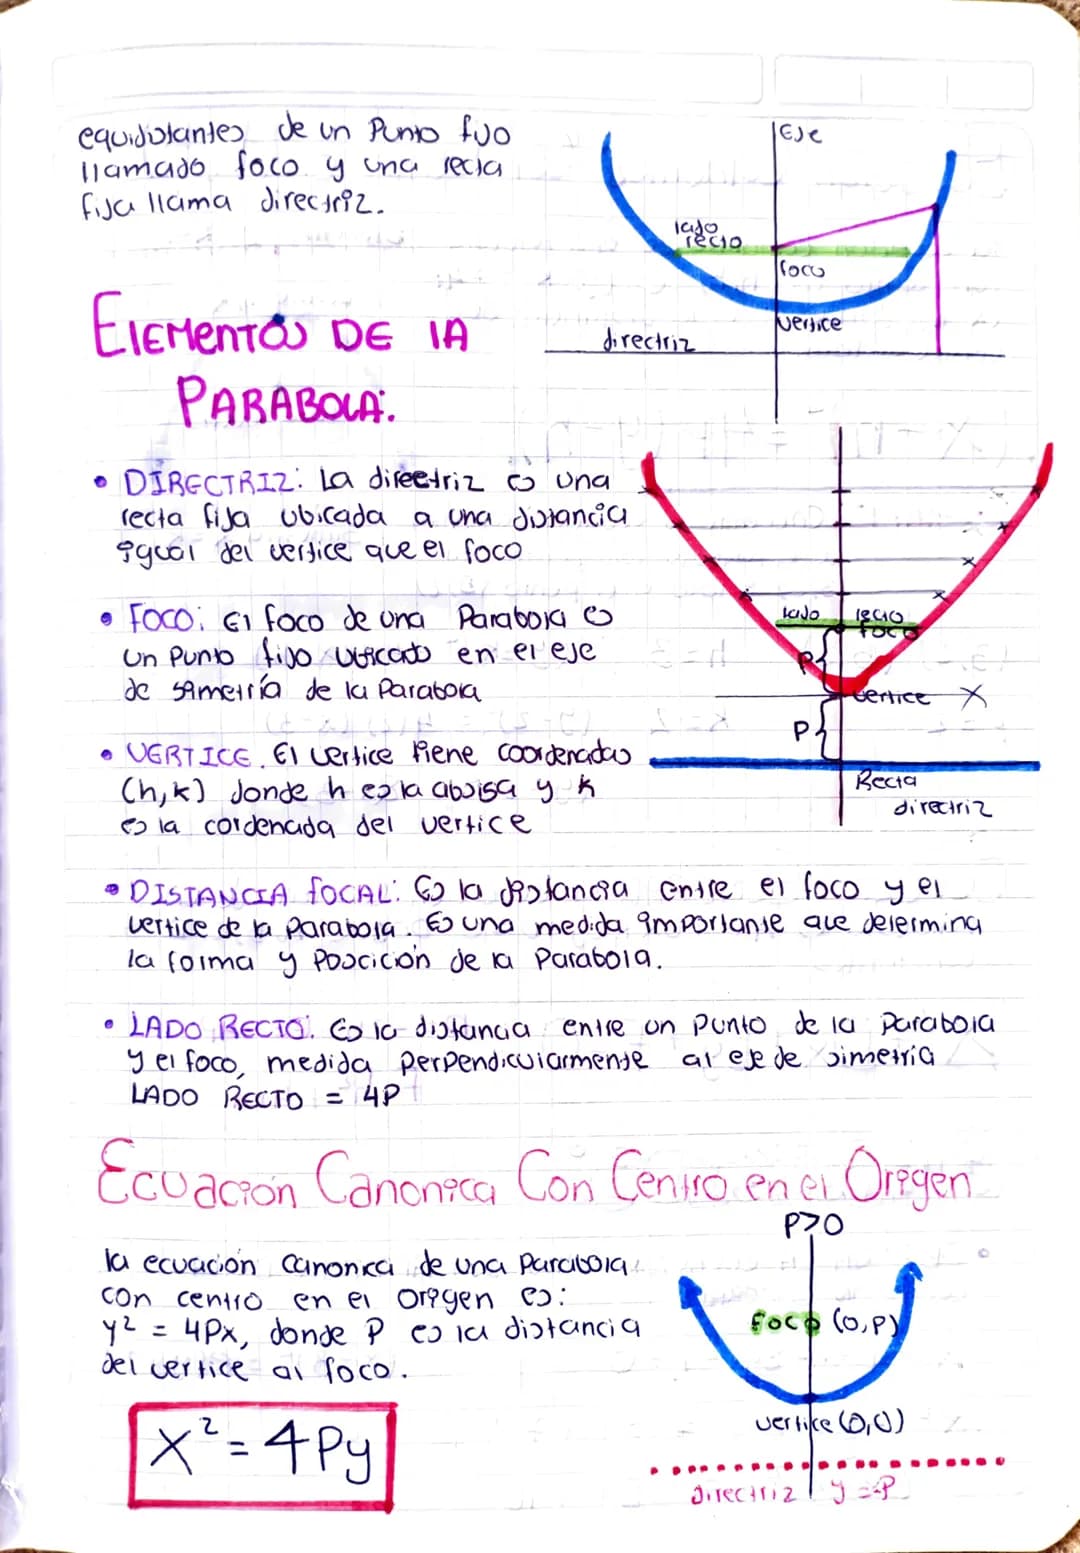 equidistantes de un Punto fijo
llamado foco y una recta
fija llama directriz.
Eje
lado
recto
foco
vertice
directriz
ELEMENTOS DE LA
PARABOLA:
• DIRECTRIZ: La directriz es una
recta fija ubicada a una distancia
igual del vertice que el foco
• FOCO: El foco de una Parabola es
un Punto fijo ubicado en el eje
de simetría de la Parabola
lado recto
foco
P
vertice X
P
Recta
directriz
• VERTICE. El vertice tiene coordenadas
(h,k) donde h es la abcisa y k
es la cordenada del vertice
• DISTANCIA FOCAL: Es la distancia entre el foco y el
vertice de la Parabola. Es una medida importante que determina
la forma y Posición de la Parabola.
• LADO RECTO: Es la distancia entre un Punto de la Parabola
y el foco, medida perpendicularmente al eje de simetría
LADO RECTO = 4P
Ecuación Canonica Con Centro en el Origen
la ecuación canonica de una Parabola
con centro en el origen es:
y² = 4Px, donde P es la distancia
del vertice al foco.
x² = 4Py
P>0
Foco (0,P)
vertice (0,0)
directriz y=-P